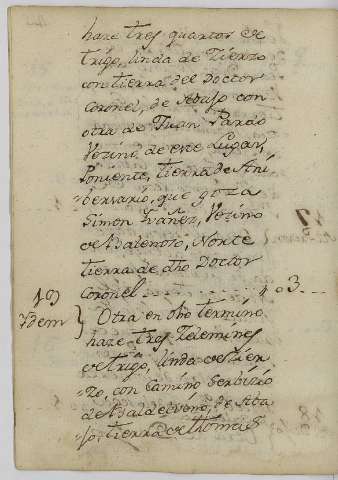 haze tres quartos de
trigo, linda de Zierzo
con tierra del Doctor
Coronel, de Abajo con
otra de Juan Pardo
Vezino de este Lugar,
Poniente, tierra de Ani
bersario, que goza
Simon Ybañez, Vezino
de Norte
tierra de dho Doctor
Coronel 03
19
Ydem } Otra en dho termino
haze tres Zelemines
de trigo, linda de Zier
zo, con Camino Serbizio
de de Aba
jo, tierra de thomas